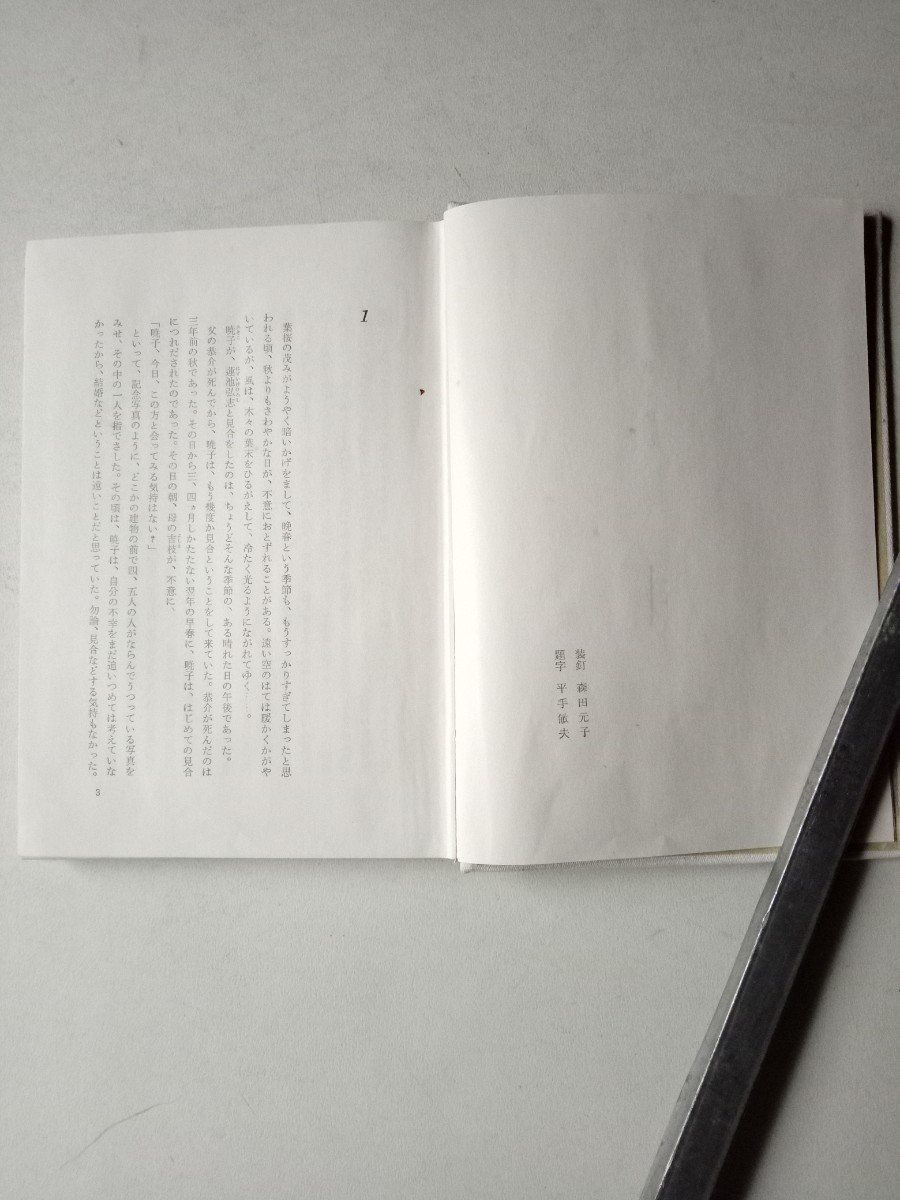 装釘　森田元子
題字　平手敏夫
1
葉桜の茂みがようやく暗いかげをまして、晩春という季節も、もうすっかりすぎてしまったと思
われる頃、秋よりもさわやかな日が、不意におとずれることがある。遠い空のはては暖かくかがや
いているが、風は、木々の葉末をひるがえして、冷たく光るようにながれてゆく……。
暁子が、蓮池弘志と見合をしたのは、ちょうどそんな季節の、ある晴れた日の午後であった。
父の恭介が死んでから、暁子は、もう幾度か見合ということをして来ていた。恭介が死んだのは
三年前の秋であった。その日から三、四ヵ月しかたたない翌年の早春に、暁子は、はじめての見合
につれだされたのであった。その日の朝、母の吉枝が、不意に、
「暁子、今日、この方と会ってみる気持はない？」
といって、記念写真のように、どこかの建物の前で四、五人の人がならんでうつっている写真を
みせ、その中の一人を指でさした。その頃は、暁子は、自分の不幸をまだ追いつめては考えていな
かったから、結婚などということは遠いことだと思っていた。勿論、見合などする気持もなかった。
3